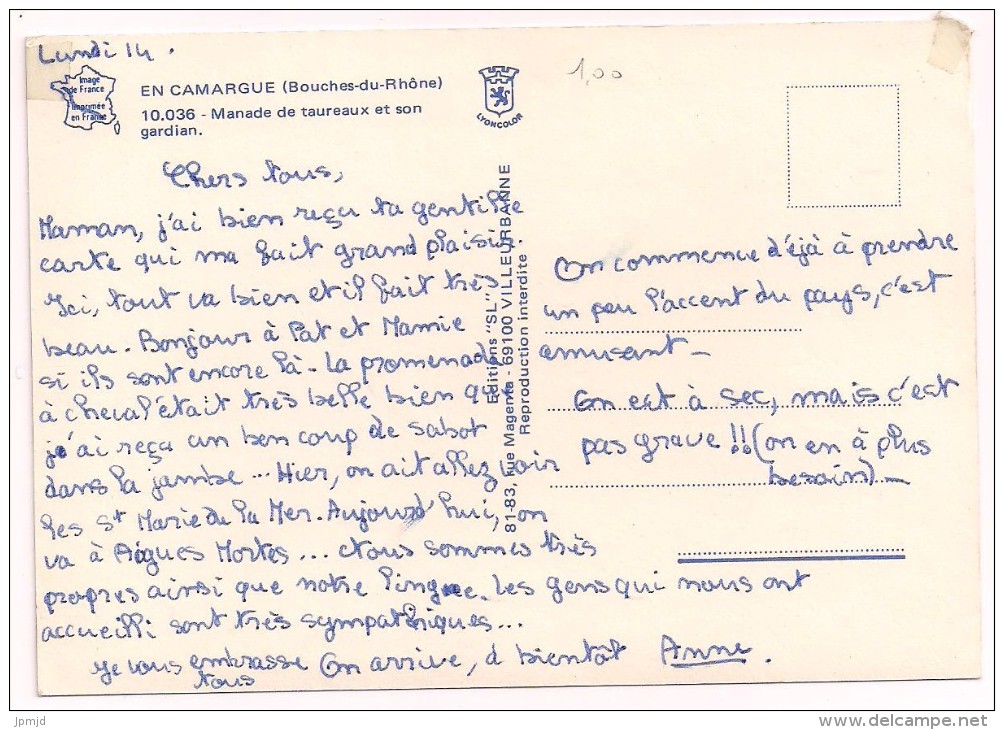 Lundi 14.
Image
de France
Imprimée
en France
EN CAMARGUE (Bouches-du-Rhône)
10.036 - Manade de taureaux et son
gardian.
LYONCOLOR
1,00
Chers tous,
Maman, j'ai bien reçu ta gentille
carte qui ma fait grand plaisir.
Ici, tout va bien et il fait très
beau. Bonjour à Pat et Mamie
si ils sont encore là - La promenade
à cheval était très belle bien que
je'ai reçu un ben coup de sabot
dans la jambe... Hier, on ait allez voir
les St Marie de la Mer. Aujourd'hui, on
va à Aigues Mortes... Nous sommes très
propres ainsi que notre linge. Les gens qui nous ont
accueilli sont très sympathiques...
Je vous embrasse On arrive, à bientôt Anne.
tous
Editions "SL"
81-83, rue Magenta - 69100 VILLEURBANNE
Reproduction interdite
On commence d'éjà à prendre
un peu l'accent du pays, c'est
amusant -
On est à sec, mais c'est
pas grave !! (on en à plus
besoin) -
jpmjd
www.delcampe.net